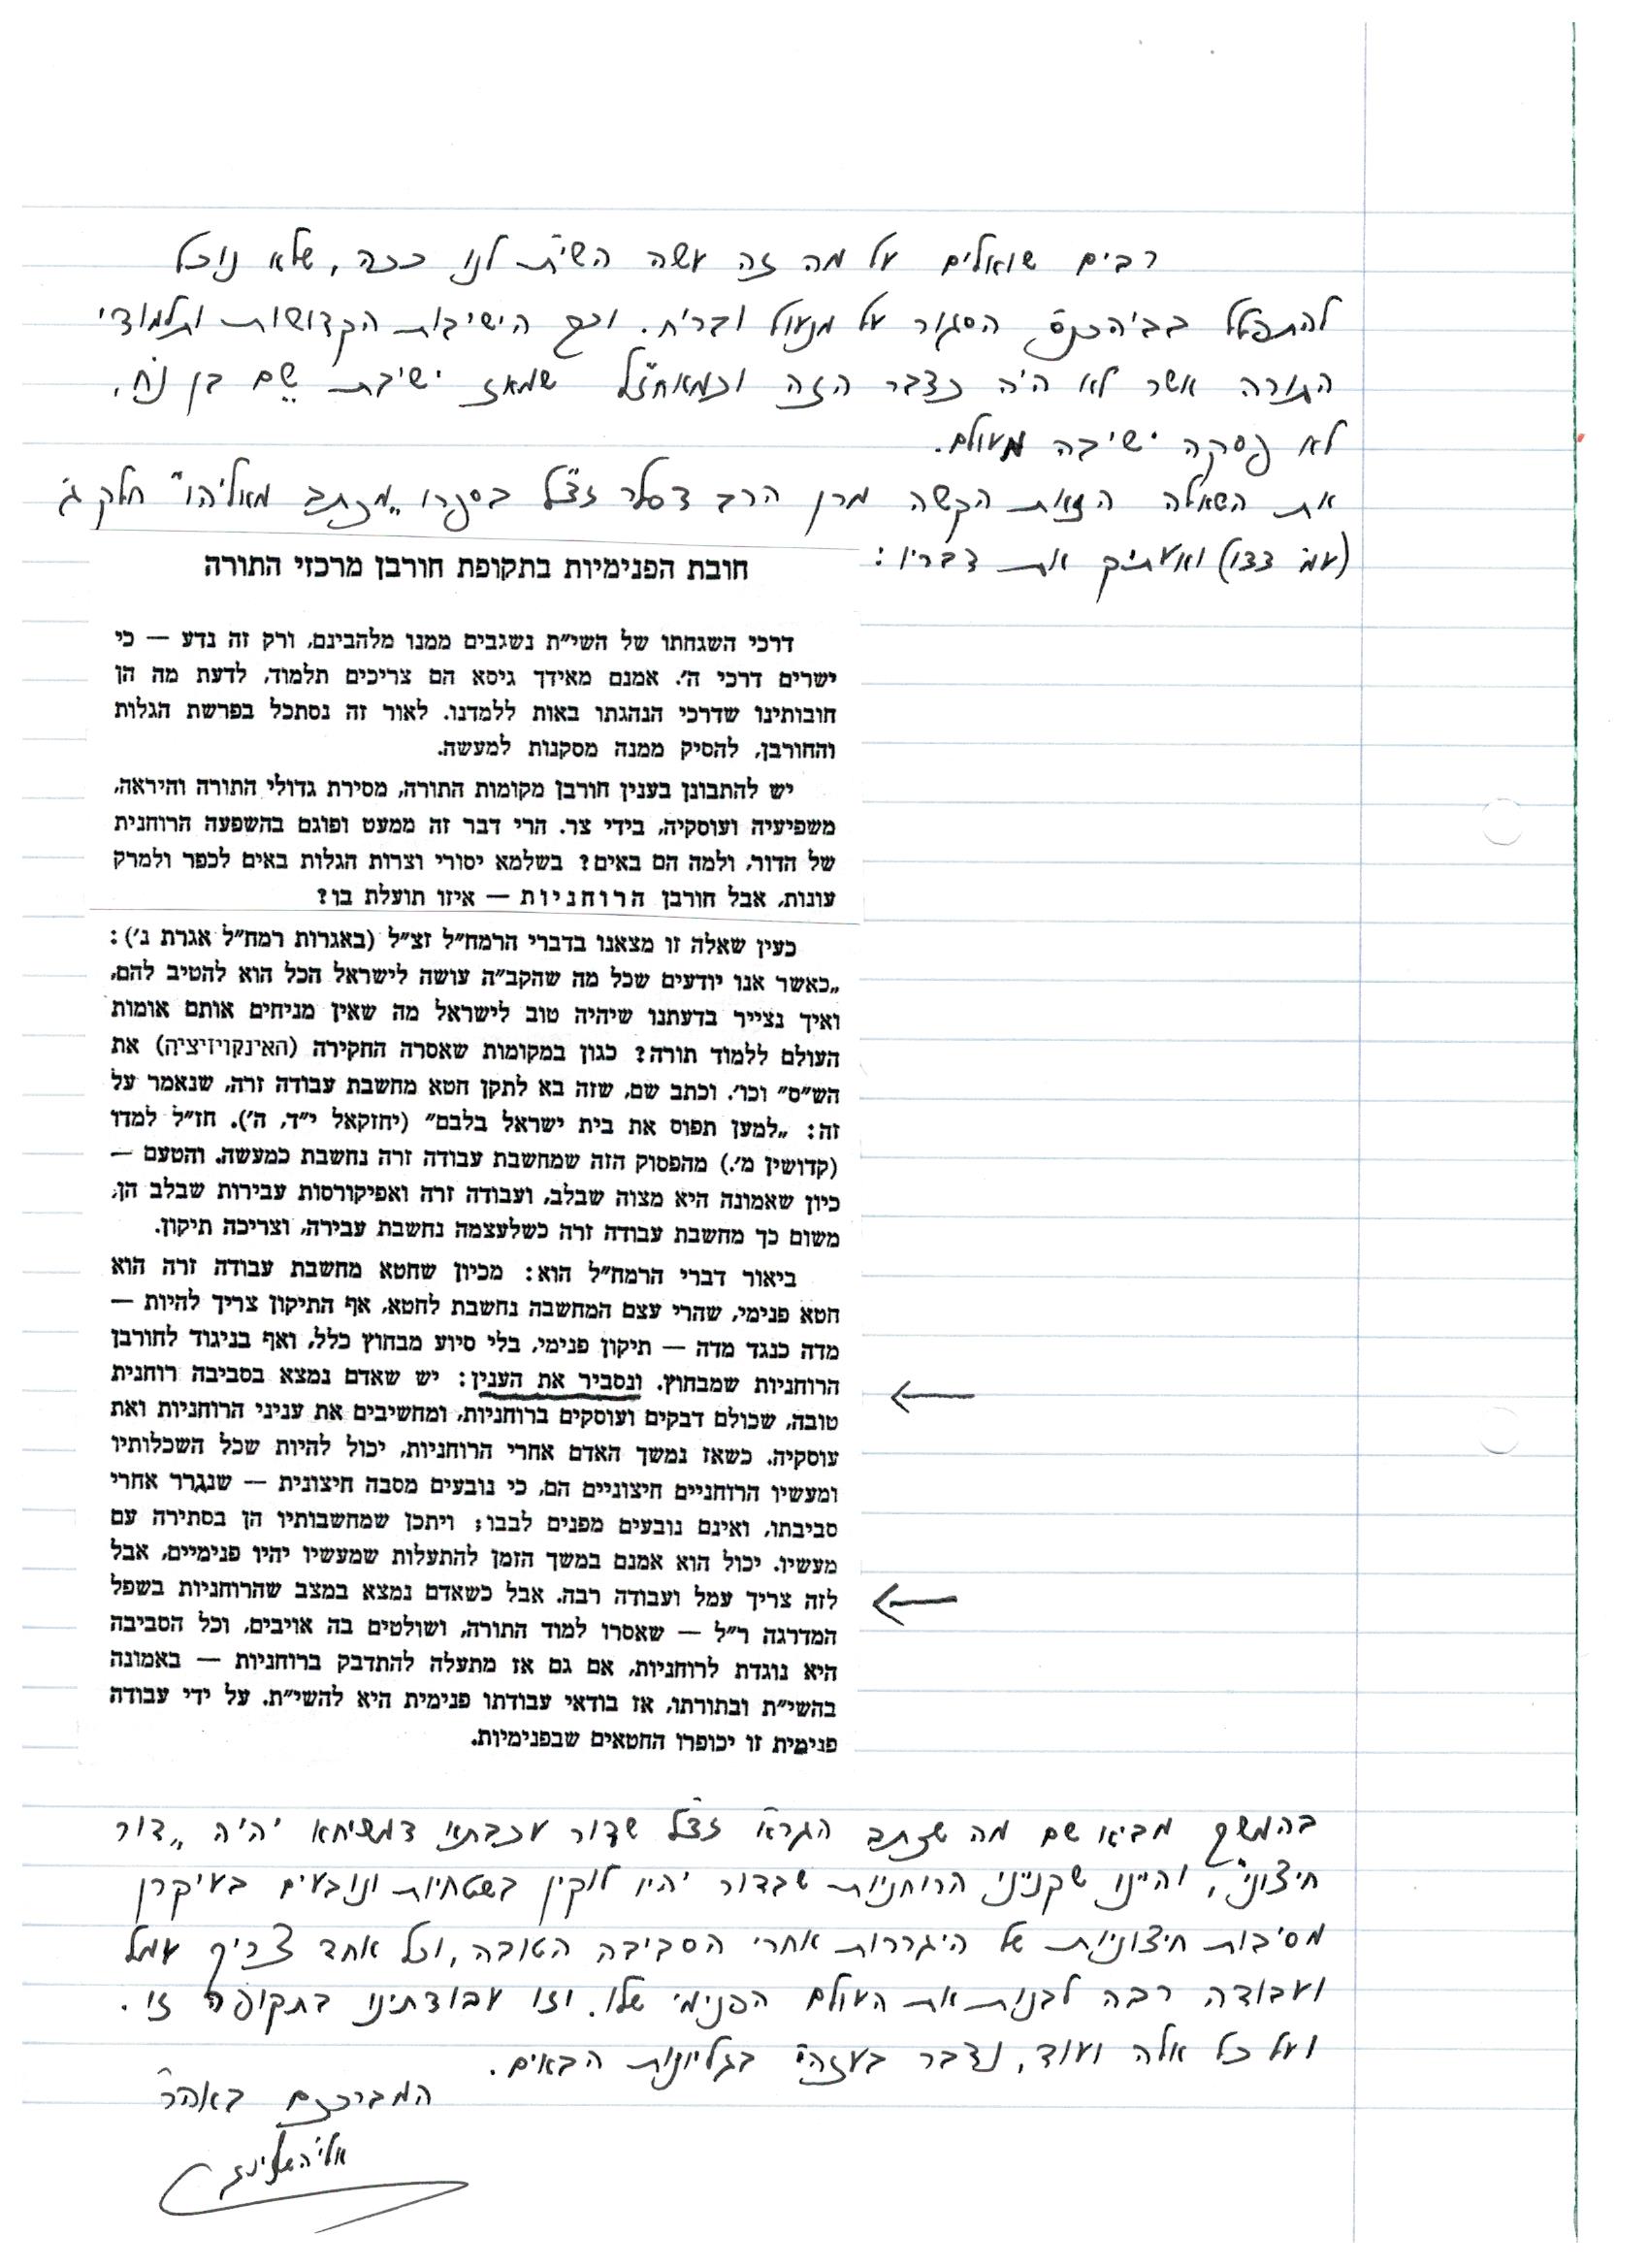 רבים שואלים על מה זה עשה השי"ת לנו ככה, שלא נוכל
להתפלל בביהכנ"ס הסגור על מנעול ובריח. וכך הישיבות הקדושות ותלמודי
התורה אשר לא היה כדבר הזה וכמאחז"ל שמאז ישיבת שֵׁם בן נֹחַ,
לא פסקה ישיבה מעולם.
את השאלה הזאת הקשה מרן הרב דסלר זצ"ל בספרו „מכתב מאליהו" חלק ג'
(עמ' רצו) ואעתיק את דבריו:
חובת הפנימיות בתקופת חורבן מרכזי התורה
דרכי השגחתו של השי״ת נשגבים ממנו מלהבינם, ורק זה נדע — כי
ישרים דרכי ה׳. אמנם מאידך גיסא הם צריכים תלמוד, לדעת מה הן
חובותינו שדרכי הנהגתו באות ללמדנו. לאור זה נסתכל בפרשת הגלות
והחורבן, להסיק ממנה מסקנות למעשה.
יש להתבונן בענין חורבן מקומות התורה, מסירת גדולי התורה והיראה,
משפיעיה ועוסקיה, בידי צר. הרי דבר זה ממעט ופוגם בהשפעה הרוחנית
של הדור, ולמה הם באים? בשלמא יסורי וצרות הגלות באים לכפר ולמרק
עונות, אבל חורבן הרוחניות — איזו תועלת בו?
כעין שאלה זו מצאנו בדברי הרמח״ל זצ״ל (באגרות רמח״ל אגרת נ׳):
„כאשר אנו יודעים שכל מה שהקב״ה עושה לישראל הכל הוא להטיב להם,
ואיך נצייר בדעתנו שיהיה טוב לישראל מה שאין מניחים אותם אומות
העולם ללמוד תורה? כגון במקומות שאסרה החקירה (האינקויזיציה) את
הש״ס״ וכו׳. וכתב שם, שזה בא לתקן חטא מחשבת עבודה זרה, שנאמר על
זה: „למען תפוס את בית ישראל בלבם״ (יחזקאל י״ד, ה׳). חז״ל למדו
(קדושין מ׳.) מהפסוק הזה שמחשבת עבודה זרה נחשבת כמעשה. והטעם —
כיון שאמונה היא מצוה שבלב, ועבודה זרה ואפיקורסות עבירות שבלב הן,
משום כך מחשבת עבודה זרה כשלעצמה נחשבת עבירה, וצריכה תיקון.
ביאור דברי הרמח״ל הוא: מכיון שחטא מחשבת עבודה זרה הוא
חטא פנימי, שהרי עצם המחשבה נחשבת לחטא, אף התיקון צריך להיות —
מדה כנגד מדה — תיקון פנימי, בלי סיוע מבחוץ כלל, ואף בניגוד לחורבן
הרוחניות שמבחוץ. ונסביר את הענין: יש שאדם נמצא בסביבה רוחנית
טובה, שכולם דבקים ועוסקים ברוחניות, ומחשיבים את עניני הרוחניות ואת
עוסקיה. כשאז נמשך האדם אחרי הרוחניות, יכול להיות שכל השכלותיו
ומעשיו הרוחניים חיצוניים הם, כי נובעים מסבה חיצונית — שנגרר אחרי
סביבתו, ואינם נובעים מפנים לבבו; ויתכן שמחשבותיו הן בסתירה עם
מעשיו. יכול הוא אמנם במשך הזמן להתעלות שמעשיו יהיו פנימיים, אבל
לזה צריך עמל ועבודה רבה. אבל כשאדם נמצא במצב שהרוחניות בשפל
המדרגה ר״ל — שאסרו למוד התורה, ושולטים בה אויבים, וכל הסביבה
היא נוגדת לרוחניות, אם גם אז מתעלה להתדבק ברוחניות — באמונה
בהשי״ת ובתורתו, אז בודאי עבודתו פנימית היא להשי״ת. על ידי עבודה
פנימית זו יכופרו החטאים שבפנימיות.
בהמשך מביא שם מה שכתב הגר"א זצ"ל שדור עקבתא דמשיחא יהיה „דור
חיצוני", והיינו שקנייני הרוחניות שבדור יהיו לוקין בשטחיות ונובעים בעיקרן
מסיבות חיצוניות של היגררות אחרי הסביבה הטובה, וכל אחד צריך עמל
ועבודה רבה לבנות את העולם הפנימי שלו. וזו עבודתינו בתקופה זו.
ועל כל אלה ועוד, נדבר בעזהי"ת בגליונות הבאים.
המברככם באה"ר